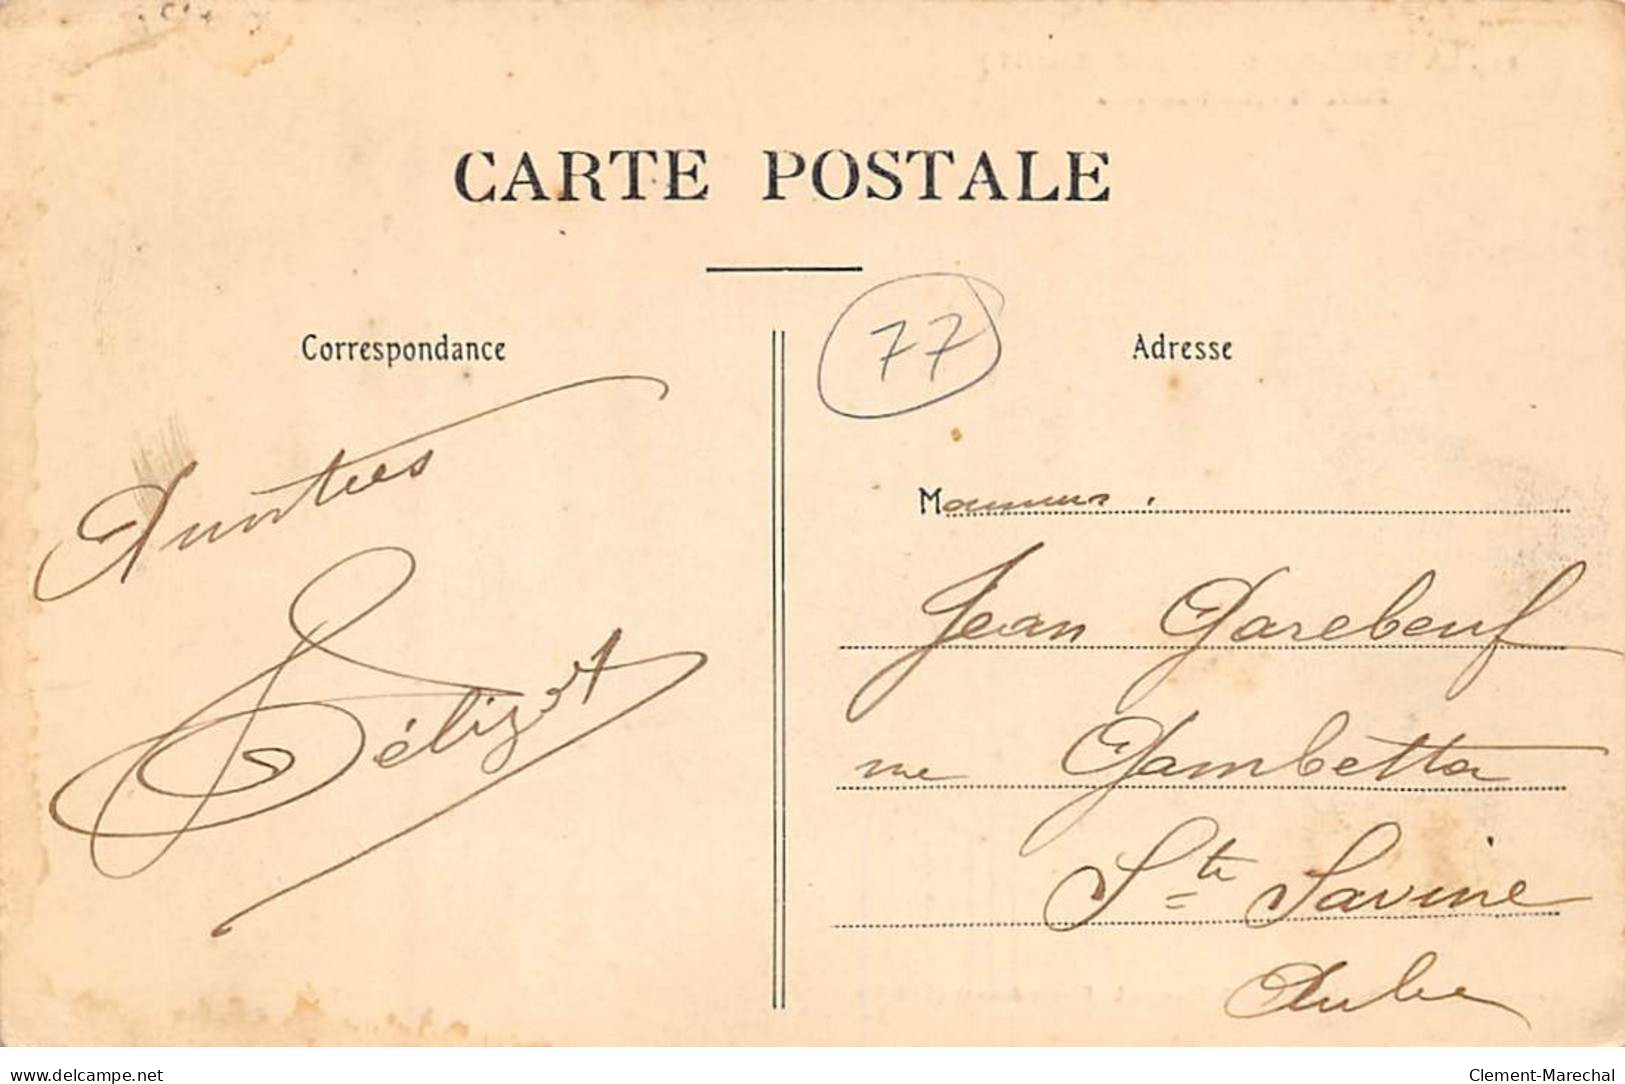 CARTE POSTALE
Correspondance
Amitiés
77
Adresse
Monsieur.
Jean Garebeuf
rue Gambetta
Ste Savine
Aube
www.delcampe.net
Clement-Marechal